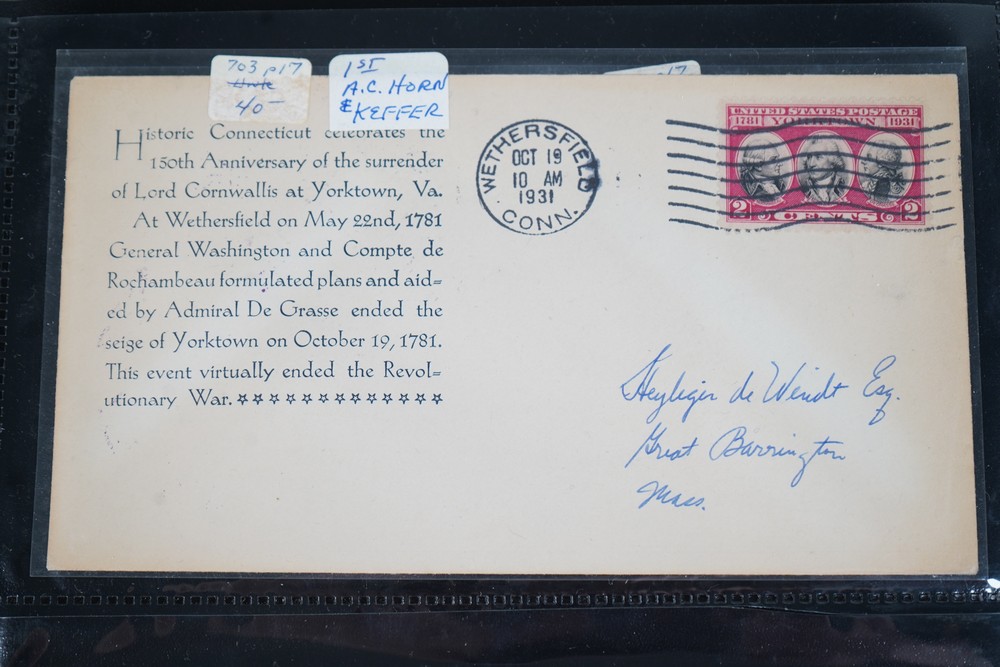 703 p17
40-
1ST
A.C. HORN
& KEFFER
p17
Historic Connecticut celebrates the
150th Anniversary of the surrender
of Lord Cornwallis at Yorktown, Va.
At Wethersfield on May 22nd, 1781
General Washington and Compte de
Rochambeau formulated plans and aid=
ed by Admiral De Grasse ended the
seige of Yorktown on October 19, 1781.
This event virtually ended the Revol=
utionary War. ☆☆☆☆☆☆☆☆☆☆☆☆☆
WETHERSFIELD
OCT 19
10 AM
1931
CONN.
UNITED STATES POSTAGE
1781 YORKTOWN 1931
2 CENTS 2
Heyliger de Windt Esq.
Great Barrington
Mass.